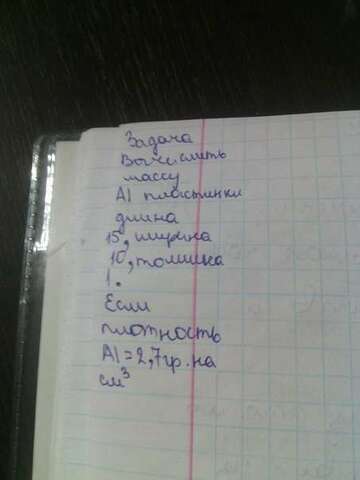 Задача
Вычислить
массу
Al пластинки
длина
15, ширина
10, толщина
1.
Если
плотность
Al = 2,7гр. на
см³